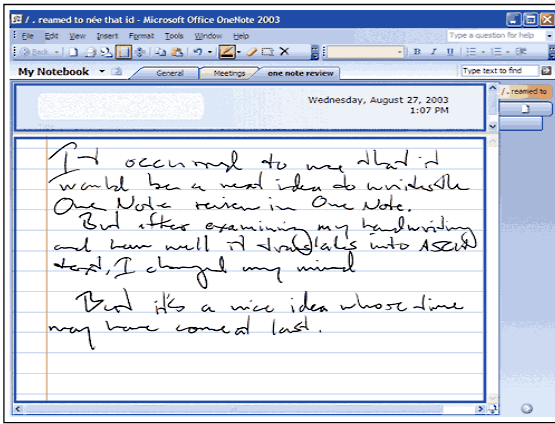 / . reamed to née that id - Microsoft Office OneNote 2003
File Edit View Insert Format Tools Window Help Type a question for help
Back B I U
My Notebook General Meetings one note review Type text to find
/ . reamed to
Wednesday, August 27, 2003
1:07 PM
It occurred to me that it
would be a neat idea to write the
One Note review in One Note.
But after examining my handwriting
and how well it translates into ASCII
text, I changed my mind
But it's a nice idea whose time
may have come at last.